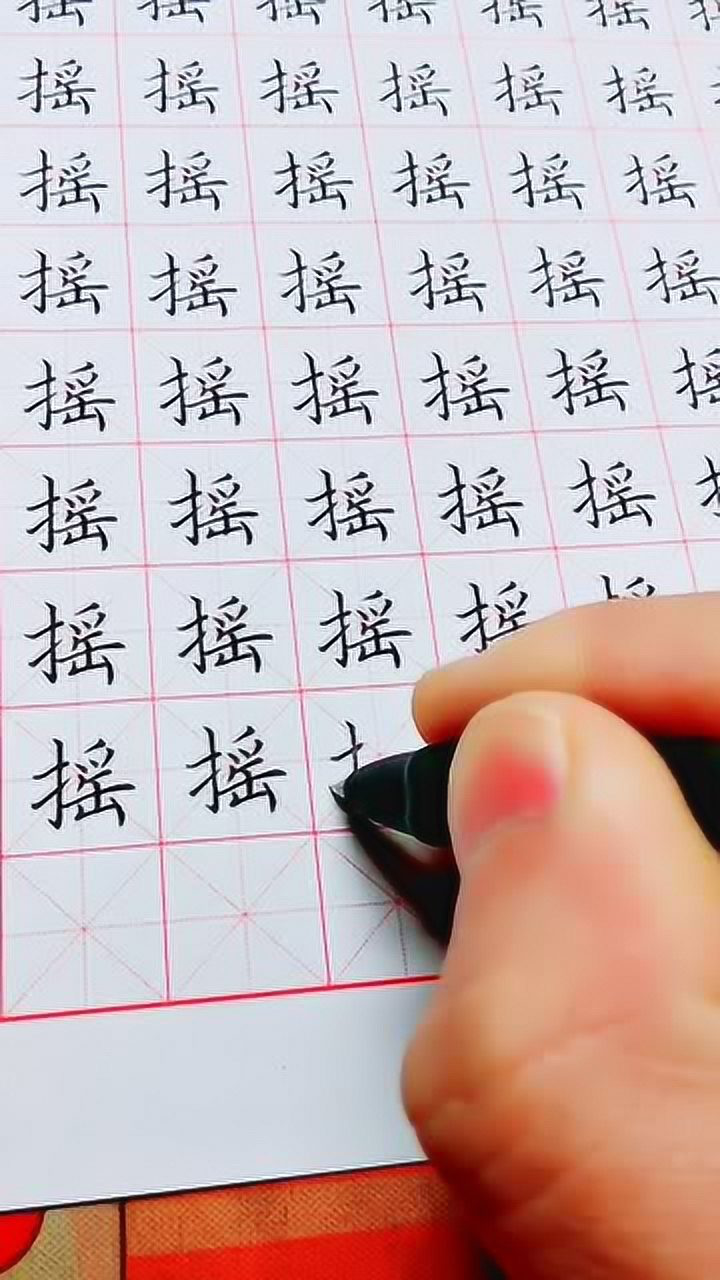 摇摇摇摇摇摇
摇摇摇摇摇摇
摇摇摇摇摇摇
摇摇摇摇摇摇
摇摇摇摇摇
摇摇摇摇
摇摇